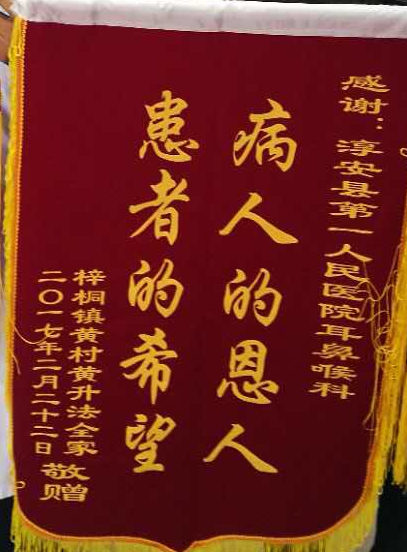 感谢：淳安县第一人民医院耳鼻喉科
病人的恩人
患者的希望
梓桐镇黄村黄升法全家
二〇一七年二月二十二日
敬赠